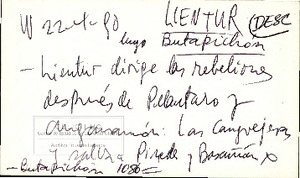 W 22-4-90 LIENTUR (DESC
luego Butapichon
- Lientur dirige las rebeliones
después de Pelantaro y
Anganamón: Las Cangrejeras
y
- Butapichon 1086